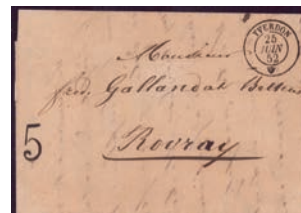 YVERDON
25
JUIN
52
Monsieur
fred. Gallandat
Rovray
5